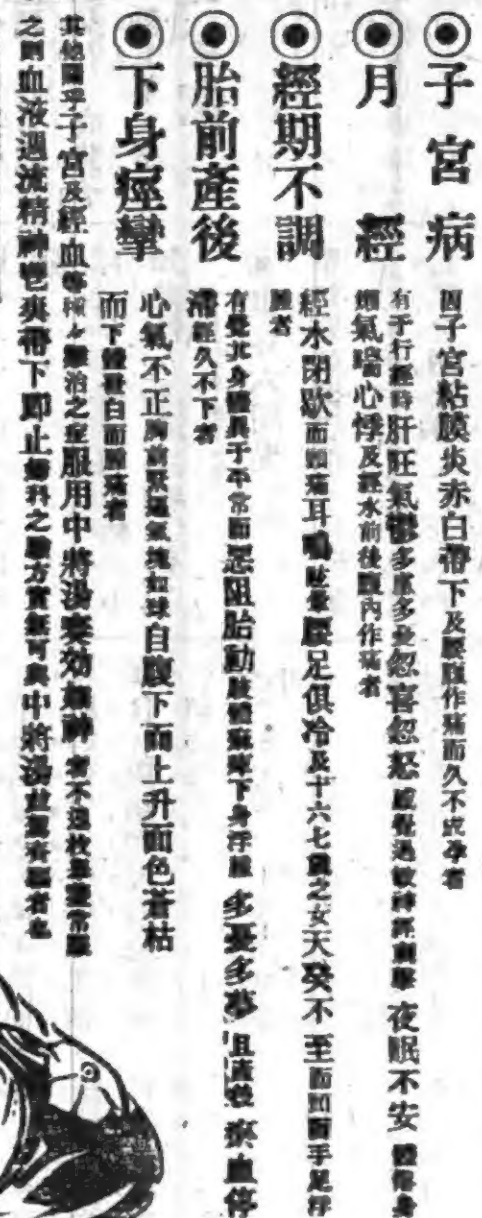 子宮病
因子宮粘膜炎赤白帶下及腰腹作痛而久不成孕者
月經
有于行經時肝旺氣鬱多慮多憂忽喜忽怒感覺過敏神經刺戟夜眠不安體倦身
煩氣喘心悸及經水前後腹內作痛者
經期不調
經水閉歇而頭痛耳鳴眩暈腰足俱冷及十六七歲之女天癸不至而顏面手足浮
腫者
胎前產後
有覺其身體異于平常而惡阻胎動肢體麻痺下身浮腫多憂多夢且產後瘀血停
滯經久不下者
下身痙攣
心氣不正胸前聚氣塊如球自腹下而上升面色蒼枯
而下體白而痛者
其他關乎子宮及經血等種々難治之症服用中將湯奏効如神者不遑枚舉常服
之則血液週流精神爽帶下即止婦科之方實無可與中將湯並駕齊驅者也